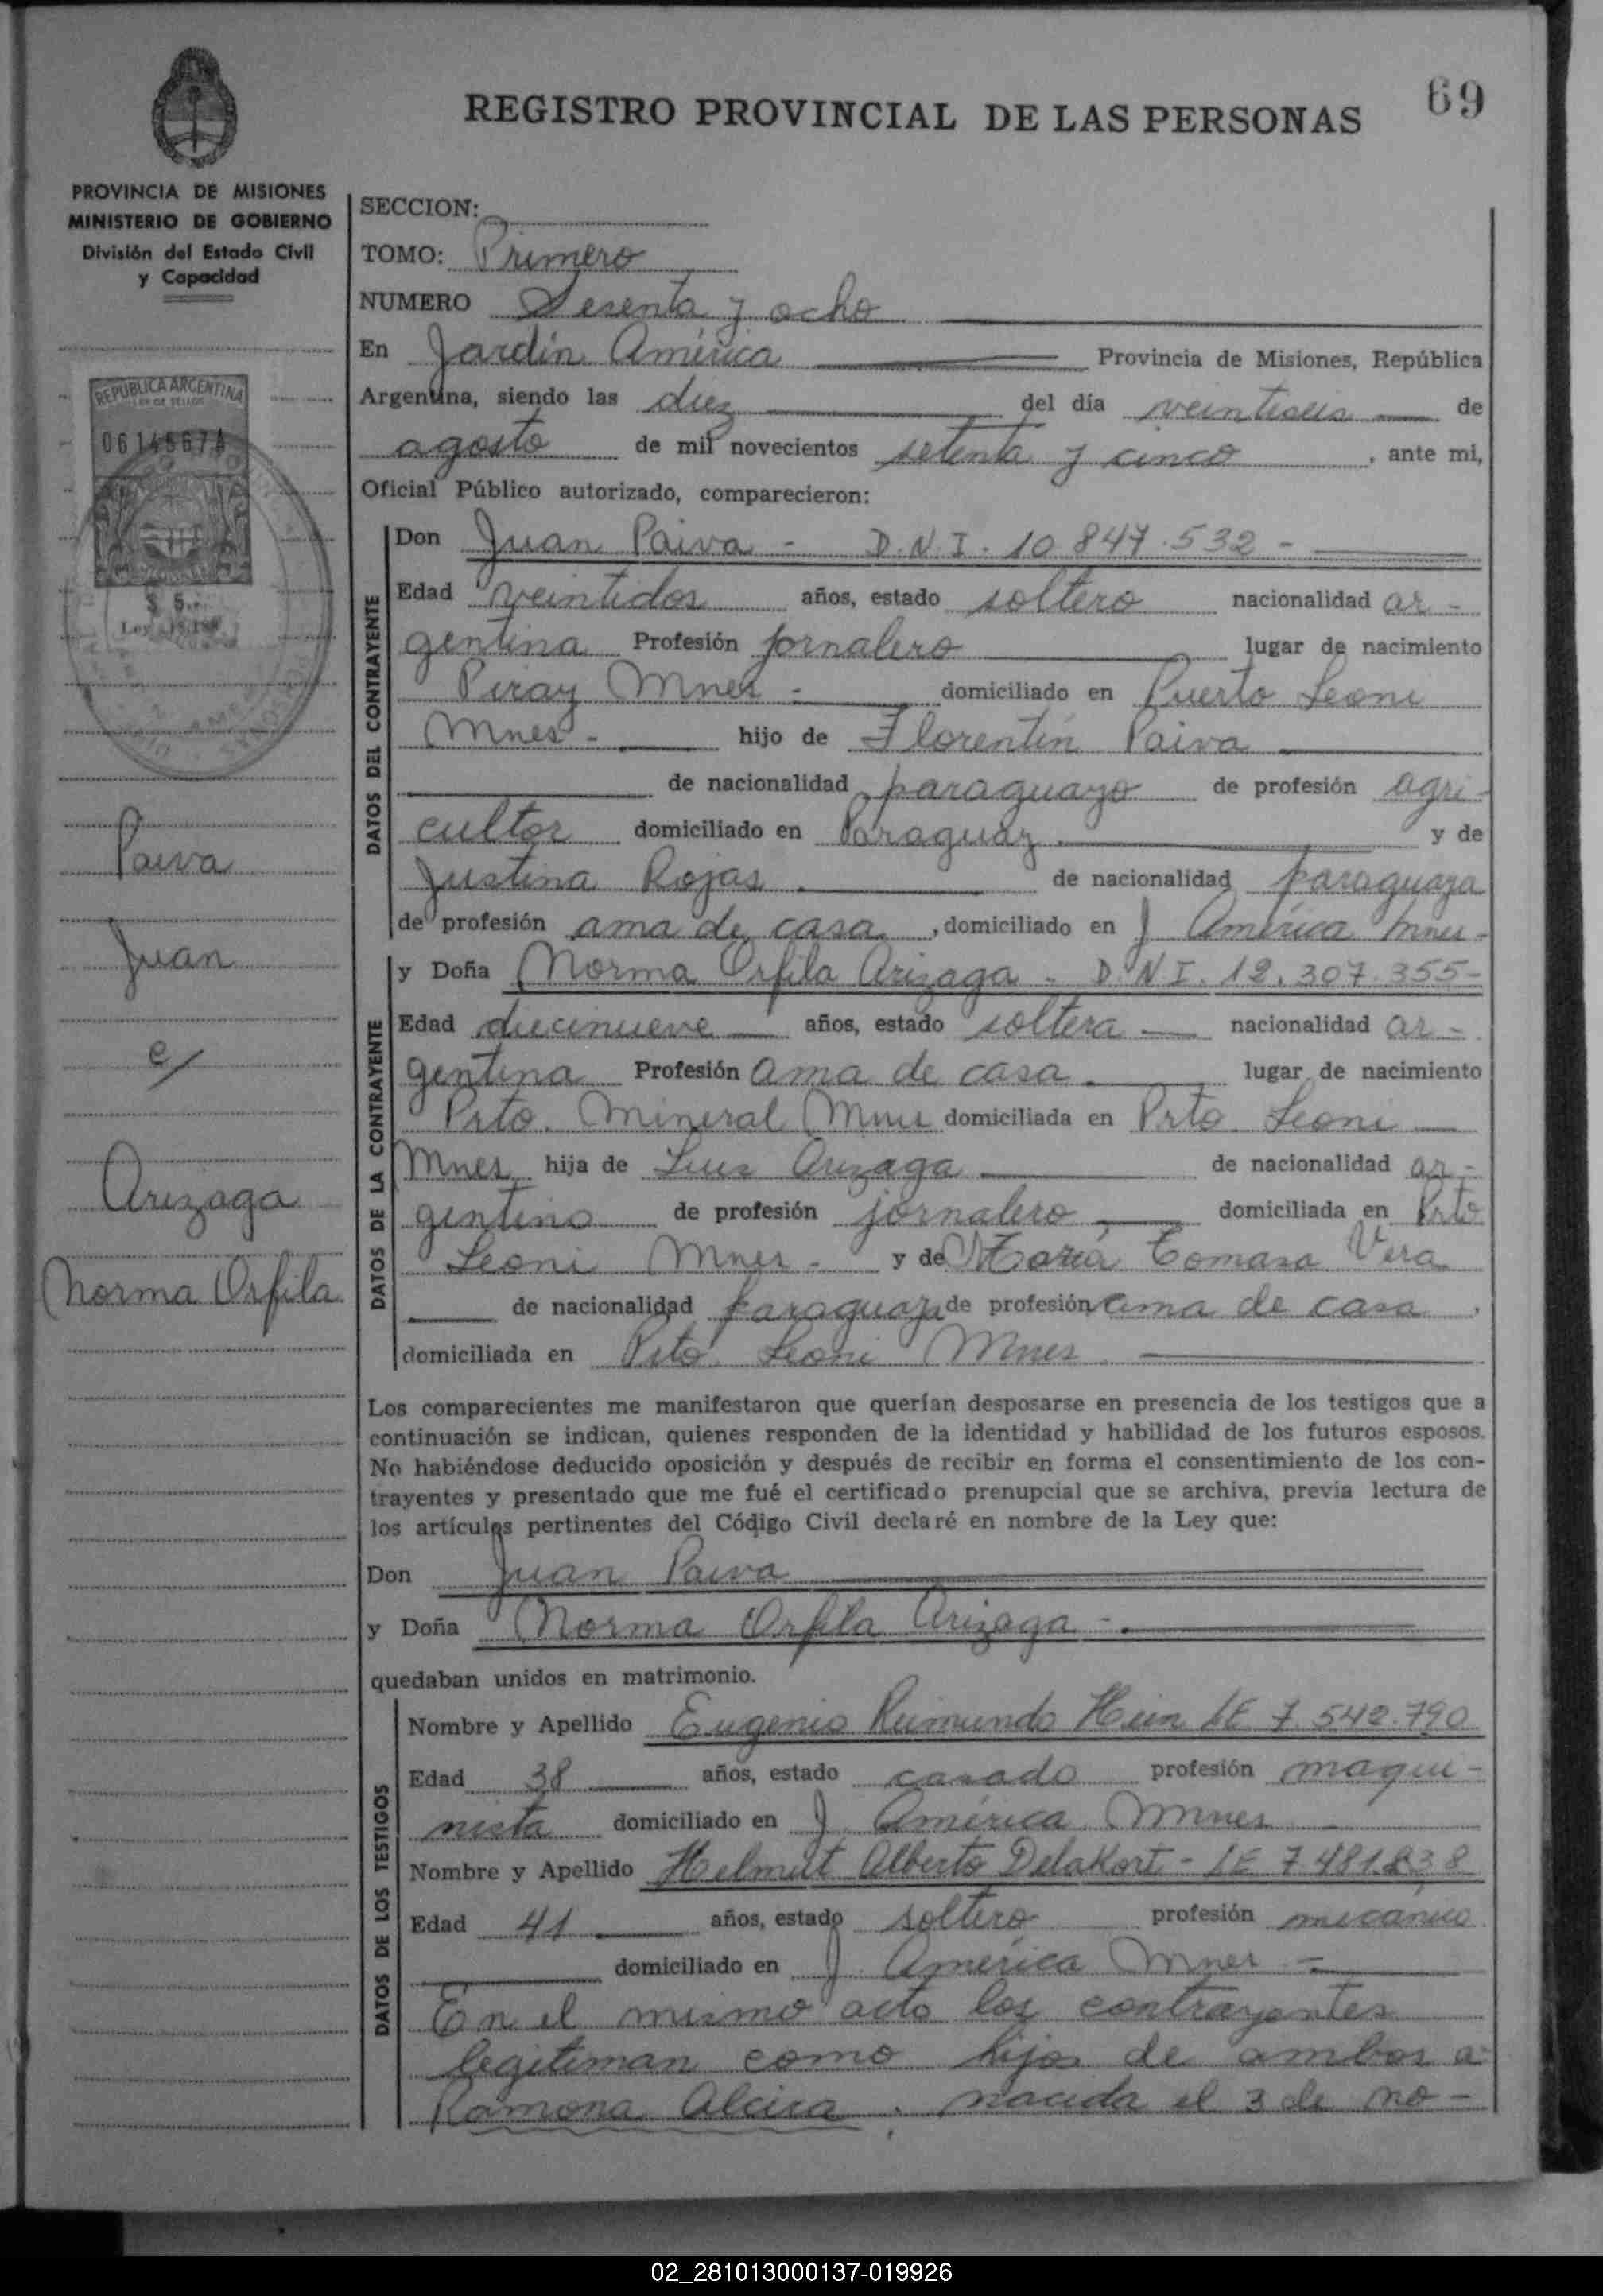 69
REGISTRO PROVINCIAL DE LAS PERSONAS
PROVINCIA DE MISIONES
MINISTERIO DE GOBIERNO
División del Estado Civil
y Capacidad
REPUBLICA ARGENTINA
LEY DE SELLOS
$ 5.-
Paiva
Juan
c/
Arizaga
Norma Orfila
SECCION:
TOMO: Primero
NUMERO Sesenta y ocho
En Jardín América Provincia de Misiones, República
Argentina, siendo las diez del día veintiseis de
agosto de mil novecientos setenta y cinco, ante mi,
Oficial Público autorizado, comparecieron:
DATOS DEL CONTRAYENTE
Don Juan Paiva - D.N.I. 10.847.532 -
Edad veintidos años, estado soltero nacionalidad ar-
gentina Profesión jornalero lugar de nacimiento
Piray Mnes - domiciliado en Puerto Leoni
Mnes - hijo de Florentín Paiva
de nacionalidad paraguayo de profesión agri-
cultor domiciliado en Paraguay y de
Justina Rojas de nacionalidad paraguaya
de profesión ama de casa, domiciliado en J América Mnes-
DATOS DE LA CONTRAYENTE
y Doña Norma Orfila Arizaga - D.N.I. 12.307.355-
Edad diecinueve años, estado soltera nacionalidad ar-
gentina Profesión ama de casa lugar de nacimiento
Prto. Mineral Mnes domiciliada en Prto. Leoni
Mnes hija de Luis Arizaga de nacionalidad ar-
gentino de profesión jornalero domiciliada en Prto
Leoni Mnes - y de María Tomasa Vera
de nacionalidad paraguaya de profesión ama de casa,
domiciliada en Prto. Leoni Mnes
Los comparecientes me manifestaron que querían desposarse en presencia de los testigos que a
continuación se indican, quienes responden de la identidad y habilidad de los futuros esposos.
No habiéndose deducido oposición y después de recibir en forma el consentimiento de los con-
trayentes y presentado que me fué el certificado prenupcial que se archiva, previa lectura de
los artículos pertinentes del Código Civil declaré en nombre de la Ley que:
Don Juan Paiva
y Doña Norma Orfila Arizaga -
quedaban unidos en matrimonio.
DATOS DE LOS TESTIGOS
Nombre y Apellido Eugenio Reimundo Hein LE 7.542.790
Edad 38 años, estado casado profesión maqui-
nista domiciliado en J América Mnes -
Nombre y Apellido Helmut Alberto Delakort - LE 7.481.838
Edad 41 años, estado soltero profesión mecánico
domiciliado en J América Mnes -
En el mismo acto los contrayentes
legitiman como hijos de ambos a
Ramona Alcira, nacida el 3 de no-
02_281013000137-019926